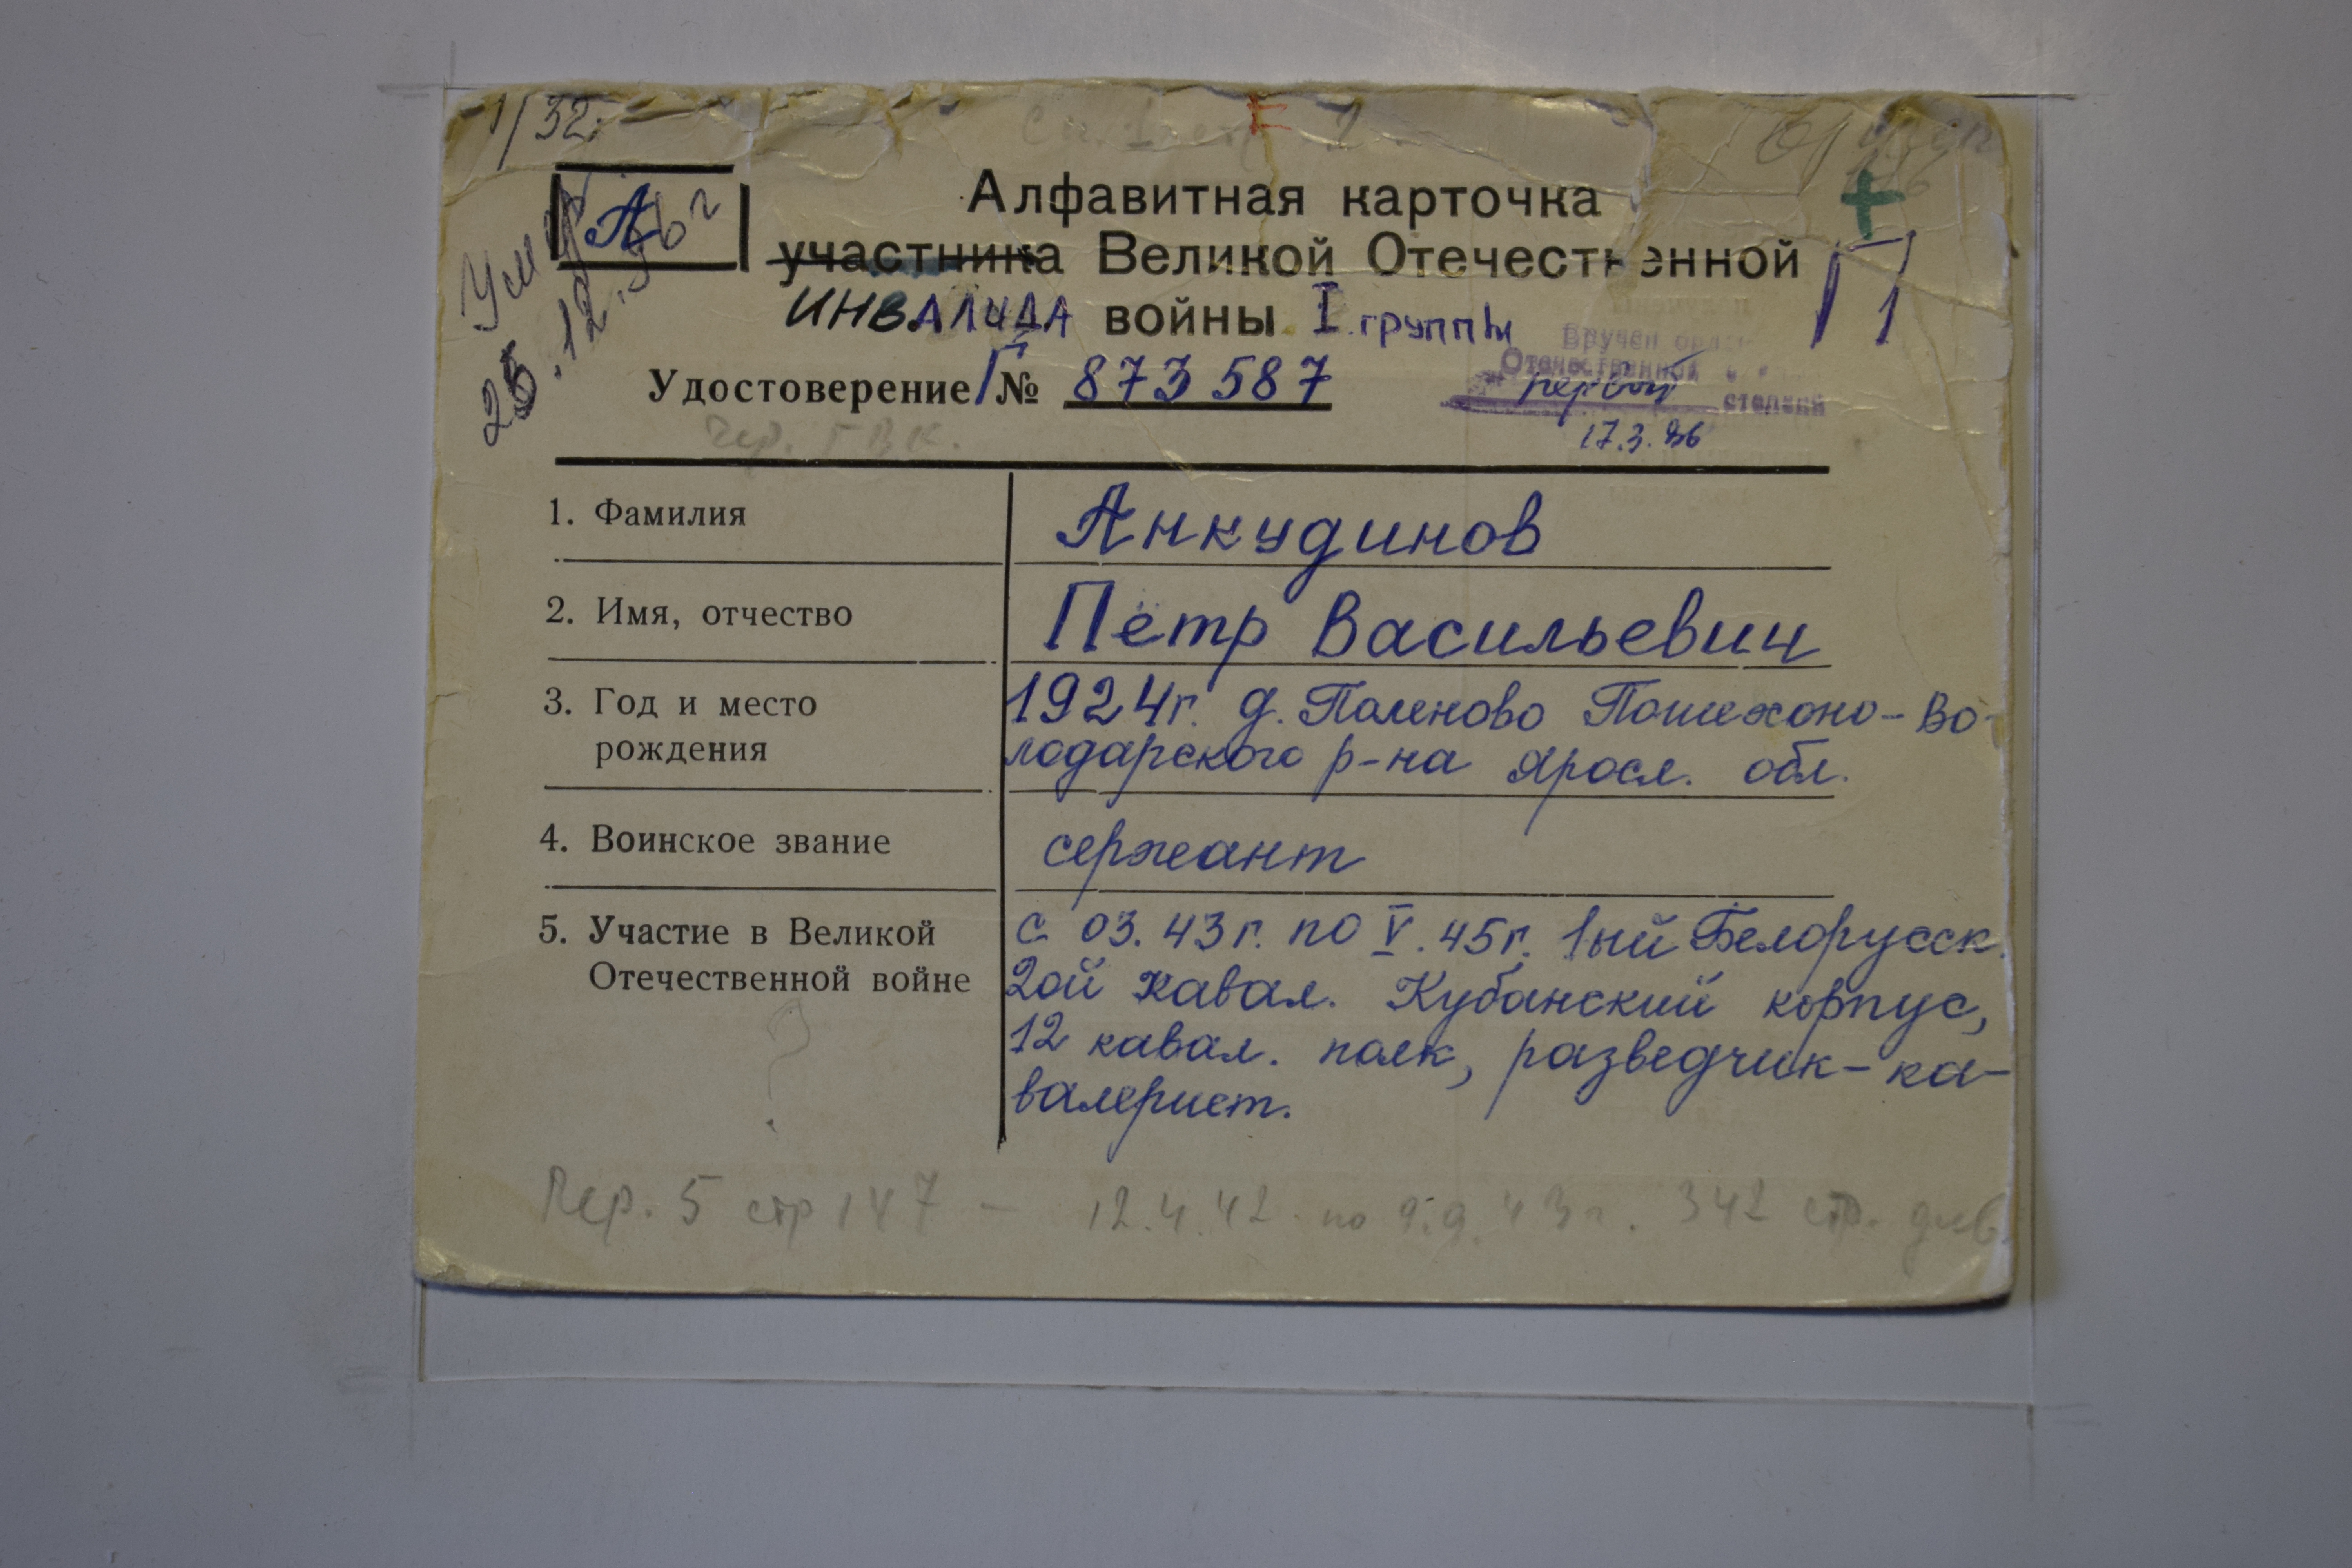 1/32
А
Умер
25.12.96г
Алфавитная карточка
участника Великой Отечественной
ИНВАЛИДА войны I группы
Удостоверение Г№ 873587
Вручен орден
Отечественной
первой степени
17.3.86
Пер. ГВК.
1. Фамилия Анкудинов
2. Имя, отчество Пётр Васильевич
3. Год и место 1924г. д. Паленово Пошехоно-Во-
рождения лодарского р-на Яросл. обл.
4. Воинское звание сержант
5. Участие в Великой с 03.43г. по V.45г. 1ый Белорусск.
Отечественной войне 2ой кавал. Кубанский корпус,
12 кавал. полк, разведчик-ка-
валерист.
?
Пер. 5 стр 147 — 12.4.42 по 9.9.43г. 342 стр. див.